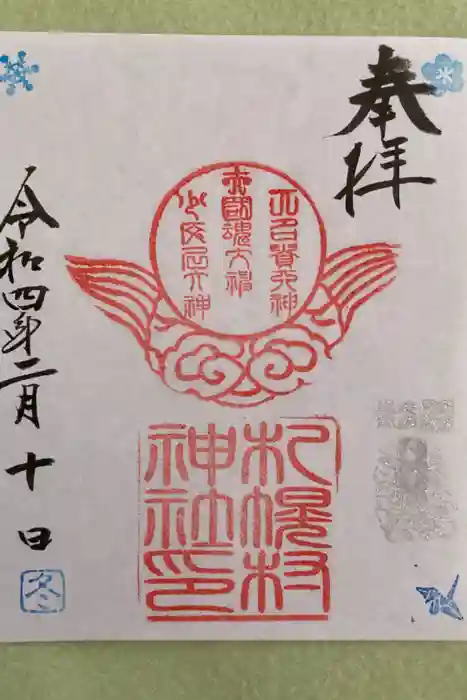 奉拝
大國魂大神
少彦名大神
札幌村
神社印
令和四年二月十日
冬